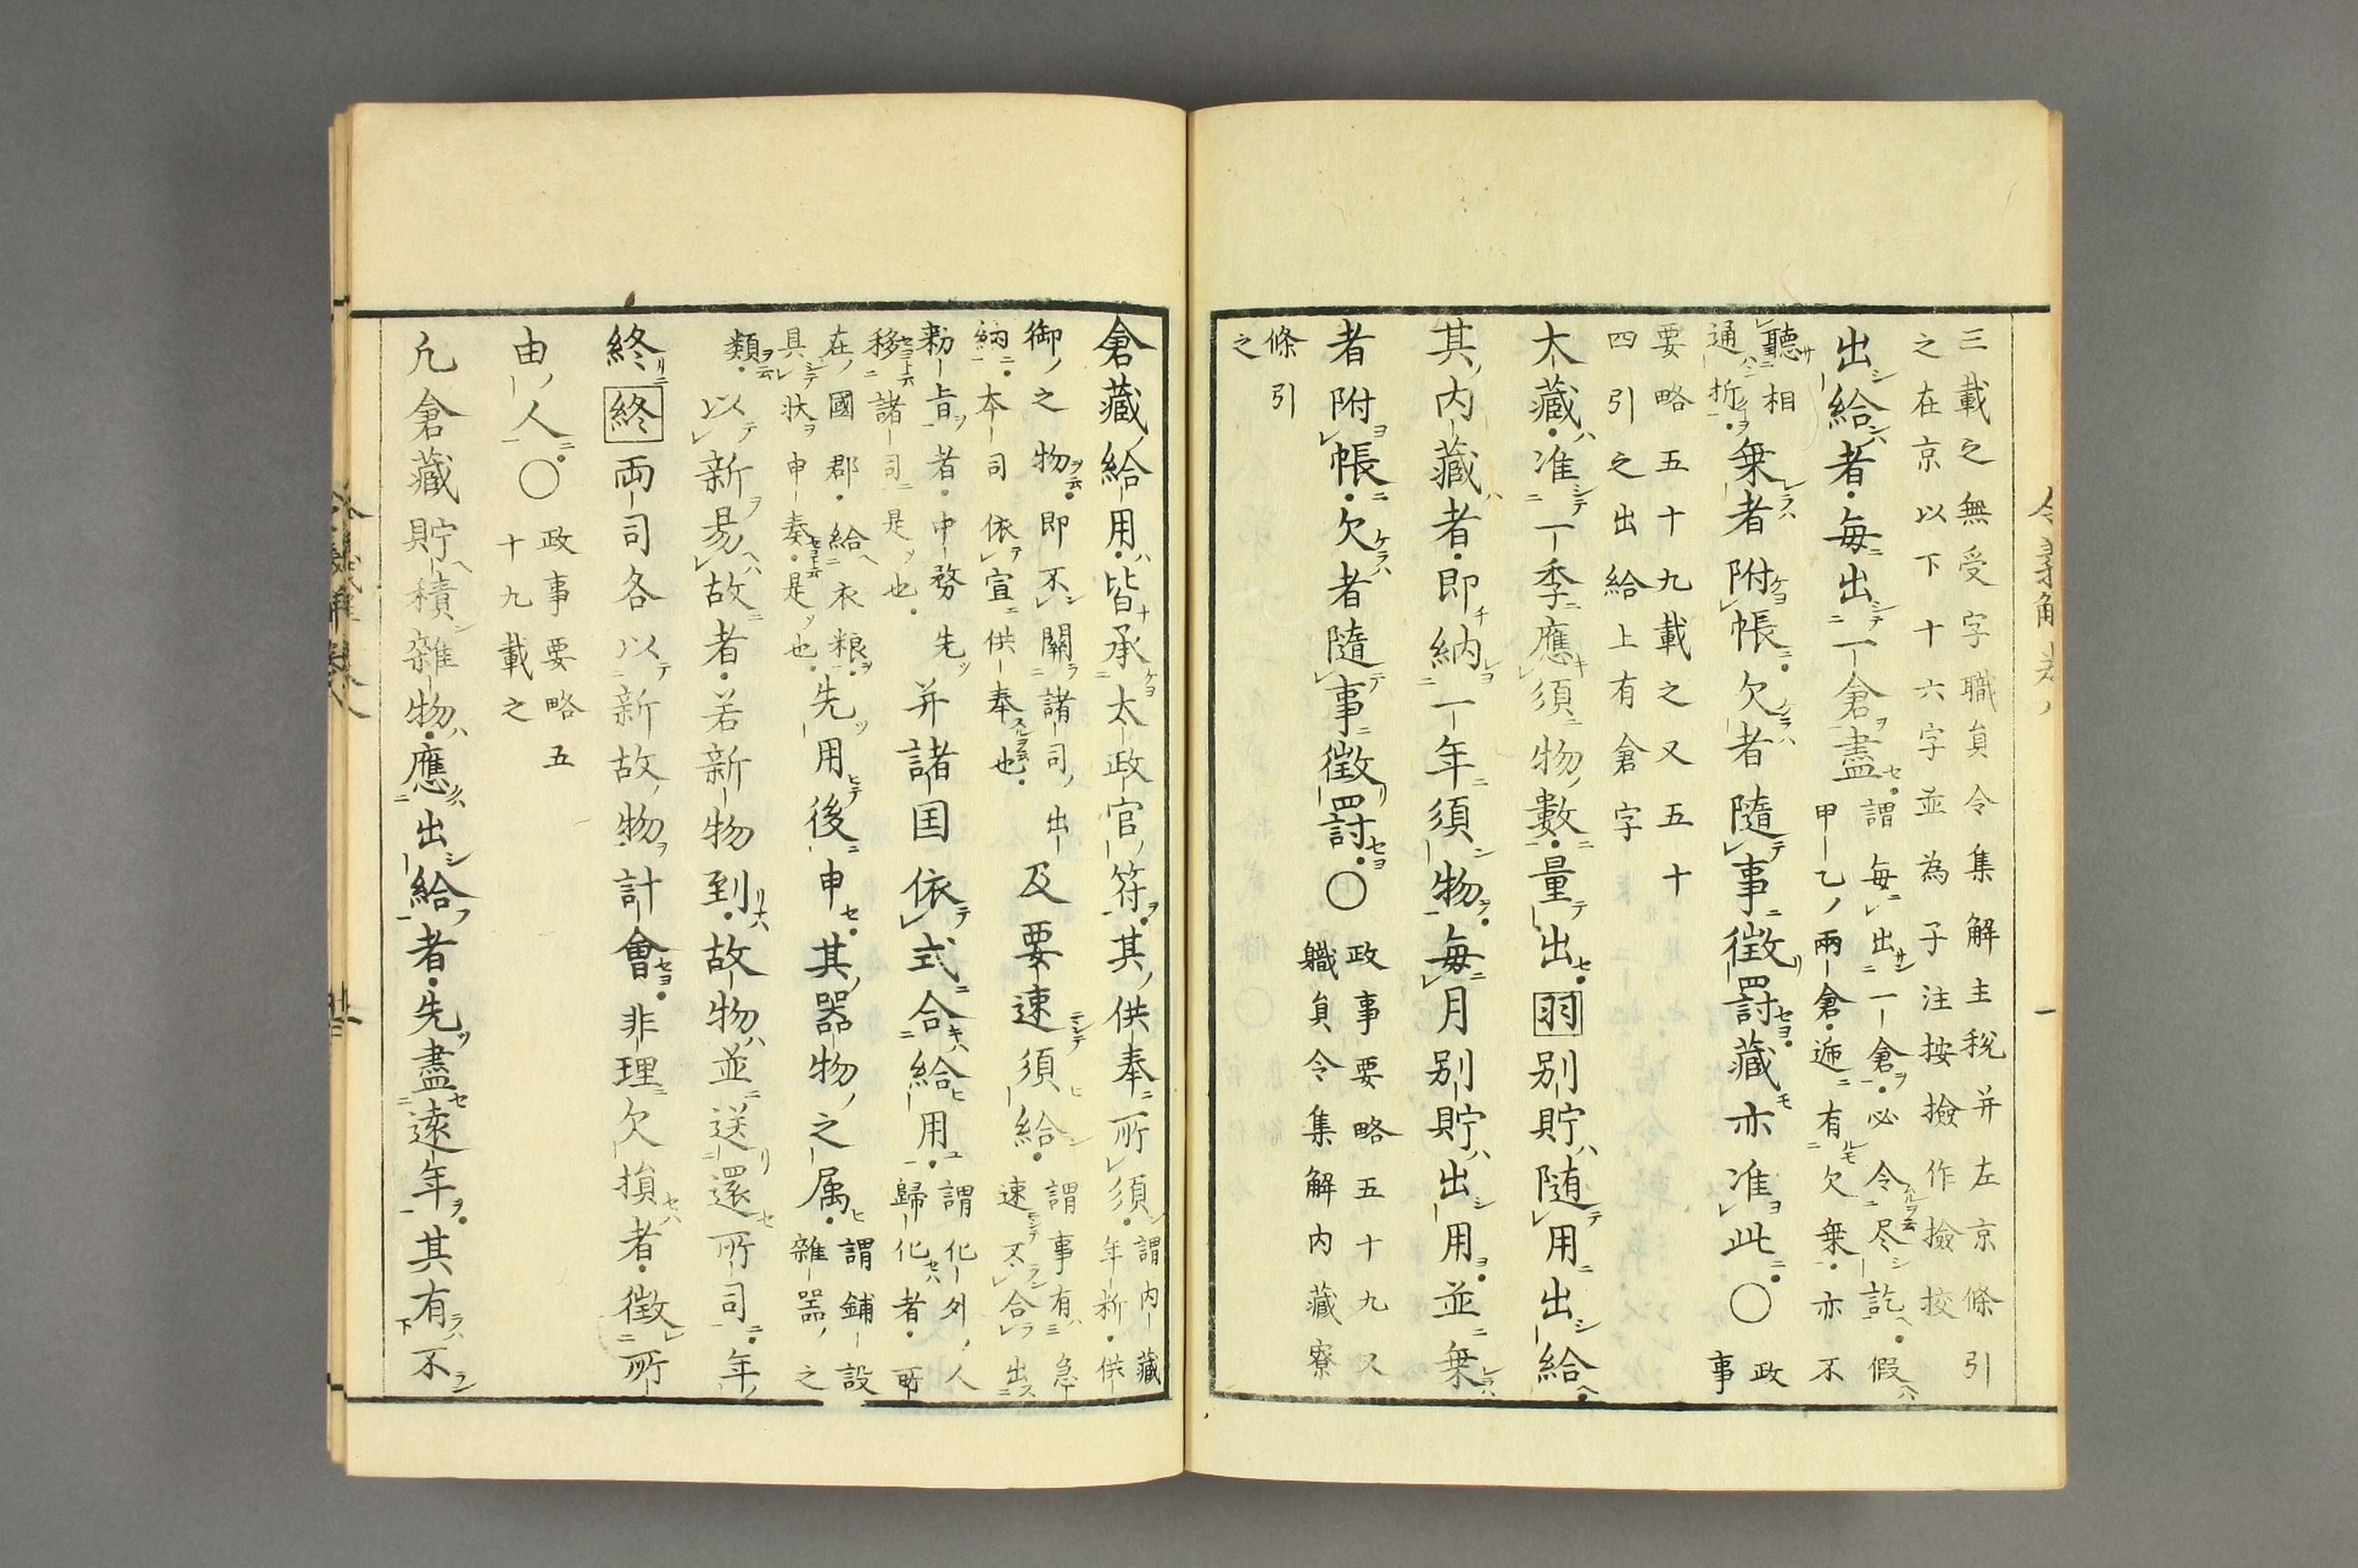 三載之無受字職員令集解主税并左京條引
之在京以下十六字並為子注按撿作撿挍
出給者毎出一倉盡
謂毎出一倉必令尽訖假
甲乙兩倉遞有欠乗亦不
聽相
通折
乗者附帳欠者隨事徴罸藏亦准此〇
政
事
要略五十九載之又五十
四引之出給上有倉字
大藏准一季應須物數量出羽別貯随用出給
其内藏者即納一年須物毎月別貯出用並乗
者附帳欠者隨事徴罸〇
政事要略五十九又
職員令集解内藏寮
條引
之
倉藏給用皆承太政官符其供奉所須
謂内藏
年新供
御之物即不關諸司出
納本司依宣供奉也
及要速須給
謂事有急
速不合出
勑旨者中務先
移諸司是也
并諸国依式合給用
謂化外人
歸化者所
在國郡給衣粮
具状申奏是也
先用後申其器物之属
謂鋪設
雑器之
類
以新易故者若新物到故物並送還所司年
終終兩司各以新故物計會非理欠損者徴所
由人〇
政事要略五
十九載之
凡倉藏貯積雜物應出給者先盡遠年其有不